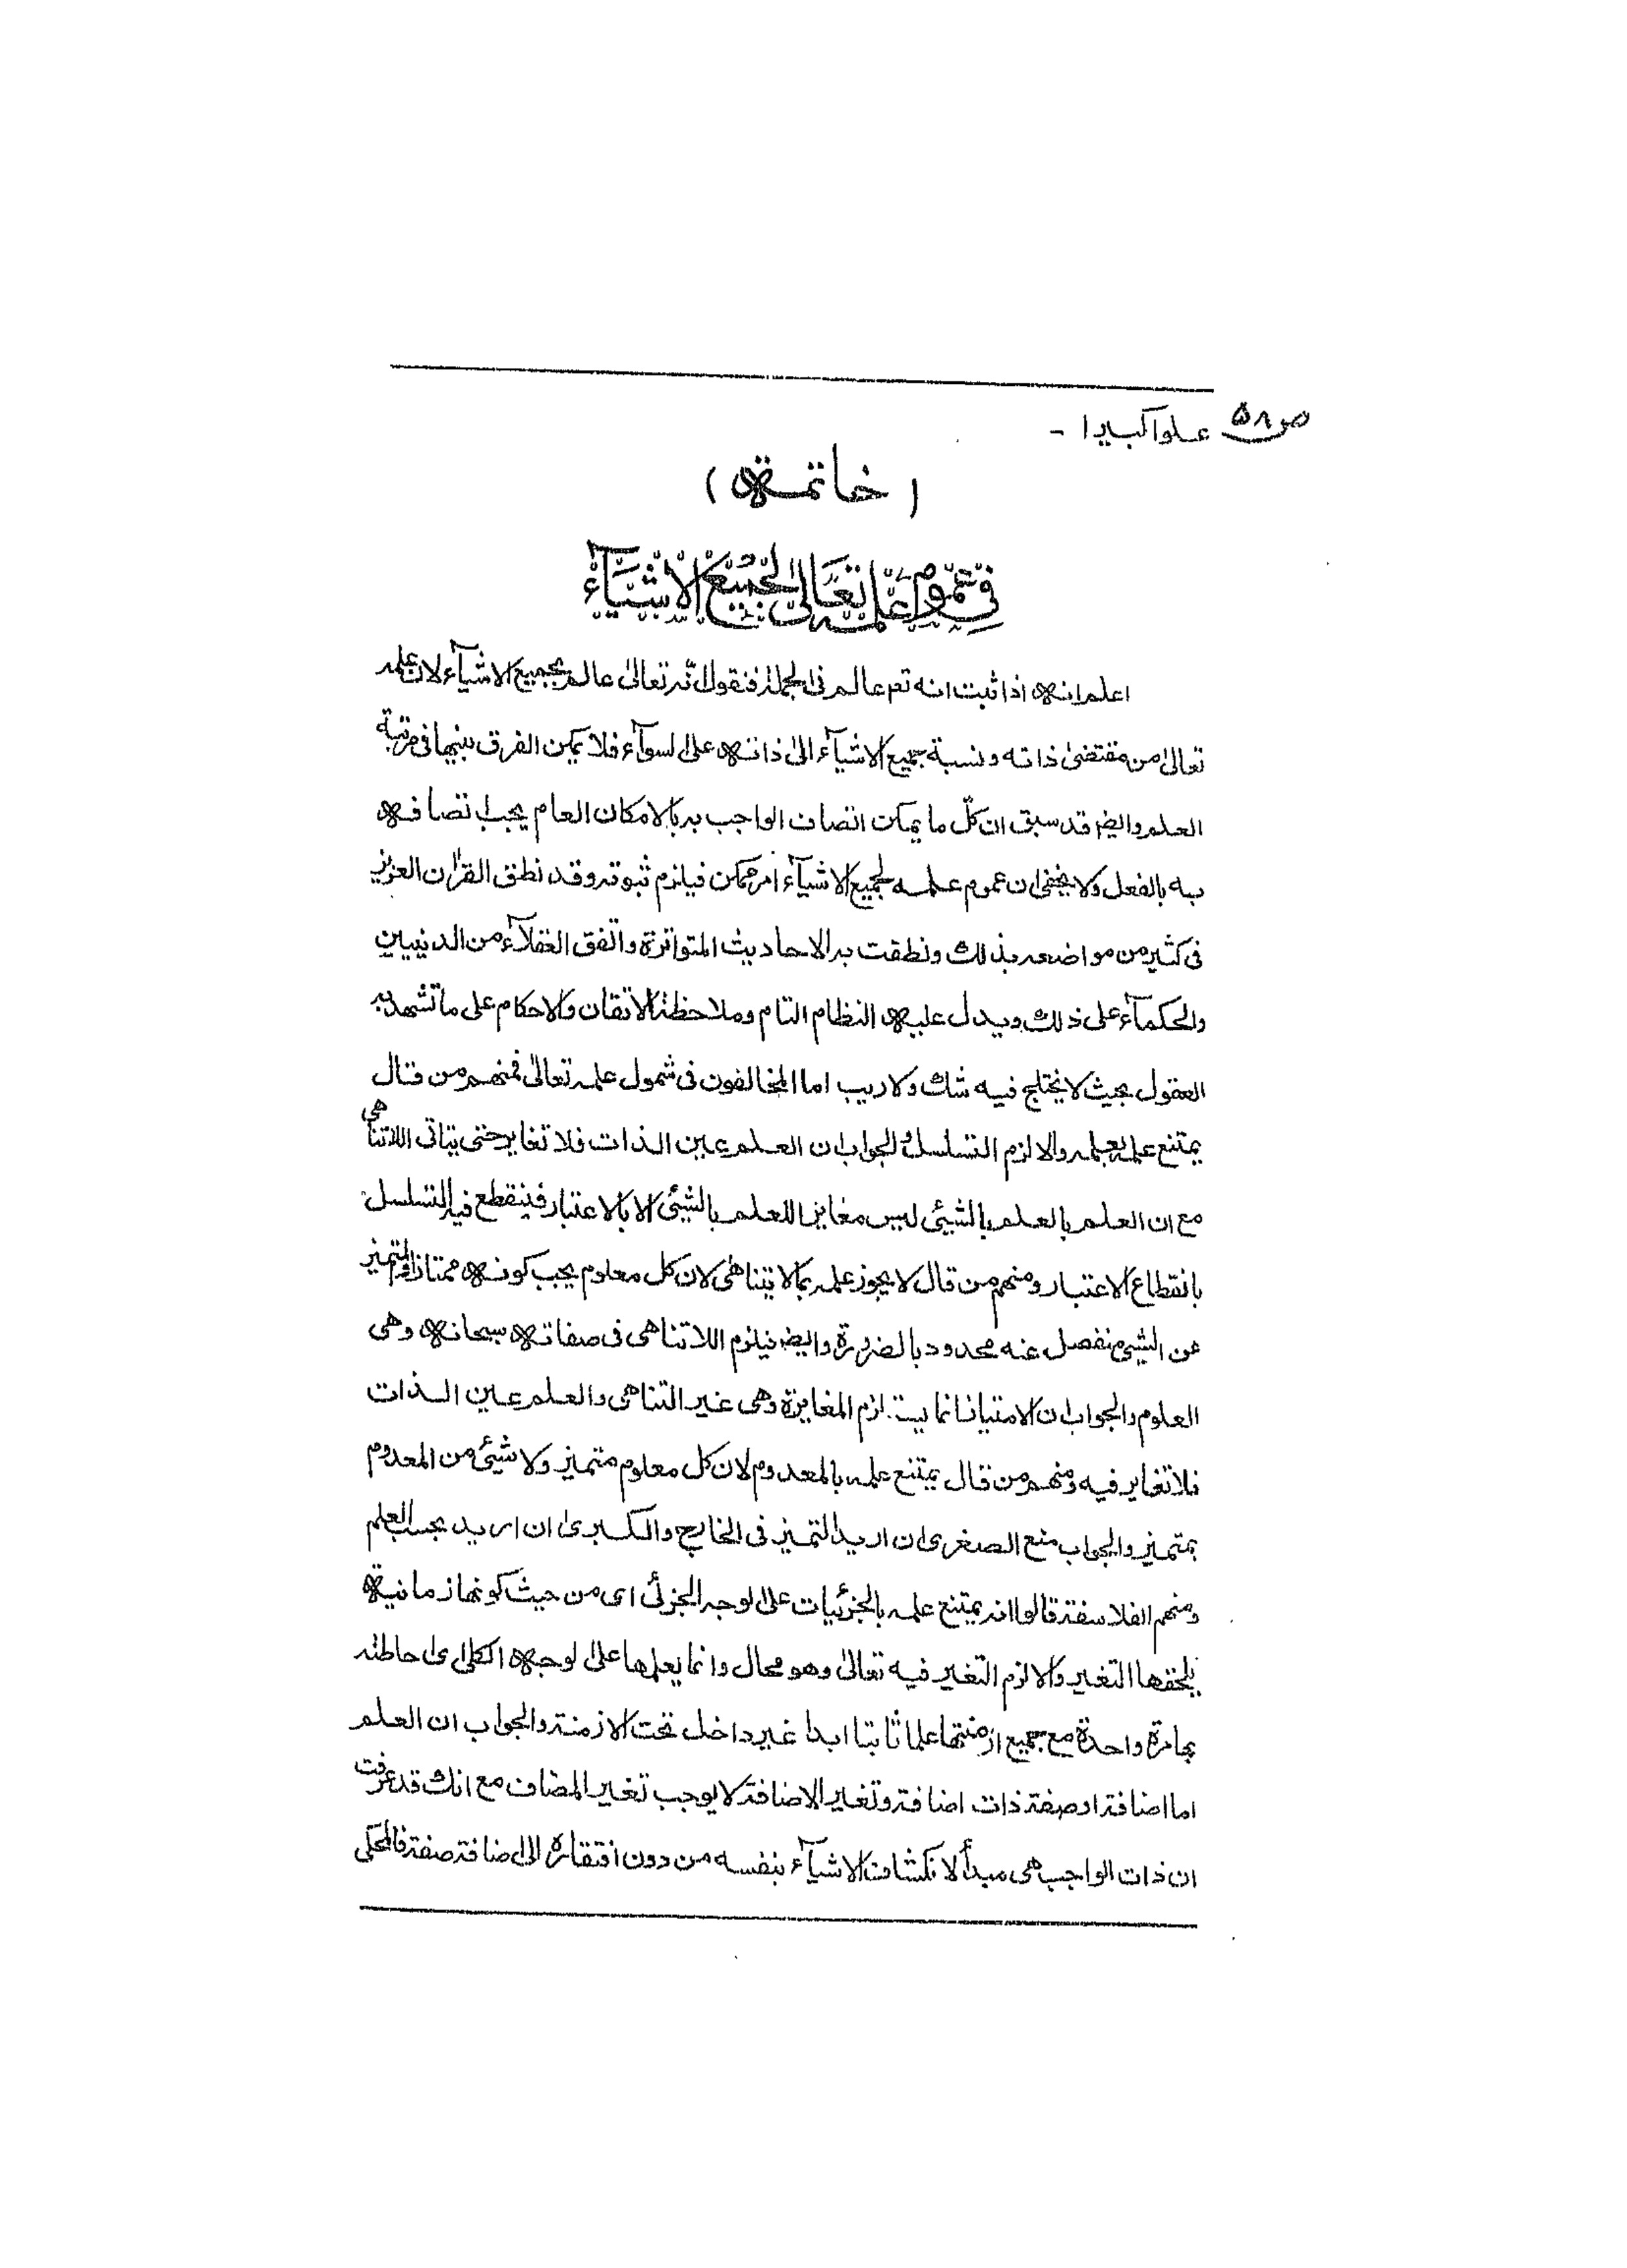 ص۵۸ علوا كبيرا -
( خاتمة )
فِي عُمُومِ عِلْمِهِ تَعَالىٰ لِجَمِيْعِ الْاَشْيَآءِ
اعلم انه اذا ثبت انه تعم عالم فى الجملة فنقول انّه تعالىٰ عالم بجميع الاشيآء لان علمه
تعالىٰ من مقتضىٰ ذاته ونسبة جميع الاشيآء الىٰ ذاته على السوآء فلا يمكن الفرق بينها فى مرتبة
العلم وايضا قد سبق ان كلّ ما يمكن اتصاف الواجب به بالامكان العام يجب اتصافه
به بالفعل ولا يخفىٰ ان عموم علمه لجميع الاشيآء امر ممكن فيلزم ثبوته وقد نطق القرآن العزيز
فى كثير من مواضعه بذلك ونطقت به الاحاديث المتواترة واتفق العقلآء من الدينيين
والحكمآء على ذلك ويدل عليه النظام التام وملاحظة الاتقان والاحكام على ما تشهد به
العقول بحيث لا يختلج فيه شك ولا ريب اما المخالفون فى شمول علمه تعالىٰ فمنهم من قال
يمتنع علمه بعلمه والا لزم التسلسل والجواب ان العلم عين الذات فلا تغاير حتى يتاتى اللاتناهى
مع ان العلم بالعلم بالشيئ ليس مغايرا للعلم بالشيئ الا بالاعتبار فينقطع فيه التسلسل
بانقطاع الاعتبار ومنهم من قال لا يجوز علمه بما لا يتناهىٰ لان كل معلوم يجب كونه ممتازا والمتميز
عن الشيئ منفصل عنه محدود بالضرورة وايضا فيلزم اللاتناهى فى صفاته سبحانه وهى
العلوم والجواب ان الامتياز انما يستلزم المغايرة وهى غير التناهى والعلم عين الذات
فلا تغاير فيه ومنهم من قال يمتنع علمه بالمعدوم لان كل معلوم متميز ولا شيئ من المعدوم
بمتميز والجواب منع الصغرى ان اريد التميز فى الخارج والكبرىٰ ان اريد بحسب العلم
ومنهم الفلاسفة قالوا انه يمتنع علمه بالجزئيات على الوجه الجزئى اى من حيث كونها زمانية
يلحقها التغير والا لزم التغير فيه تعالىٰ وهو محال وانما يعلمها على الوجه الكلى اى احاطته
بها مرة واحدة مع جميع ازمنتها علما ثابتا ابدا غير داخل تحت الازمنة والجواب ان العلم
اما اضافة او صفة ذات اضافة وتغير الاضافة لا يوجب تغير المضاف مع انك قد عرفت
ان ذات الواجب هى مبدأ لانكشاف الاشيآء بنفسه من دون افتقاره الى اضافة صفة فالمحكى